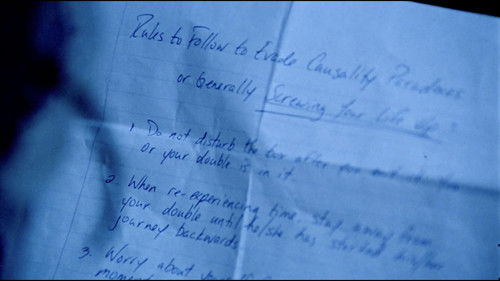 Rules to Follow to Evade Causality Paradoxes
or Generally Screwing Your Life Up:
1. Do not disturb the box after you
or your double is in it.
2. When re-experiencing time, stay away from
your double until he/she has started his/her
journey backwards
3. Worry about